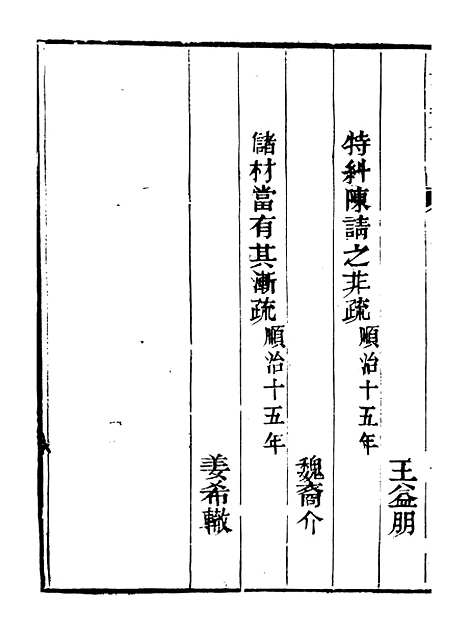 王益朋
特糾陳請之非疏順治十五年
魏裔介
儲材當有其漸疏順治十五年
姜希轍